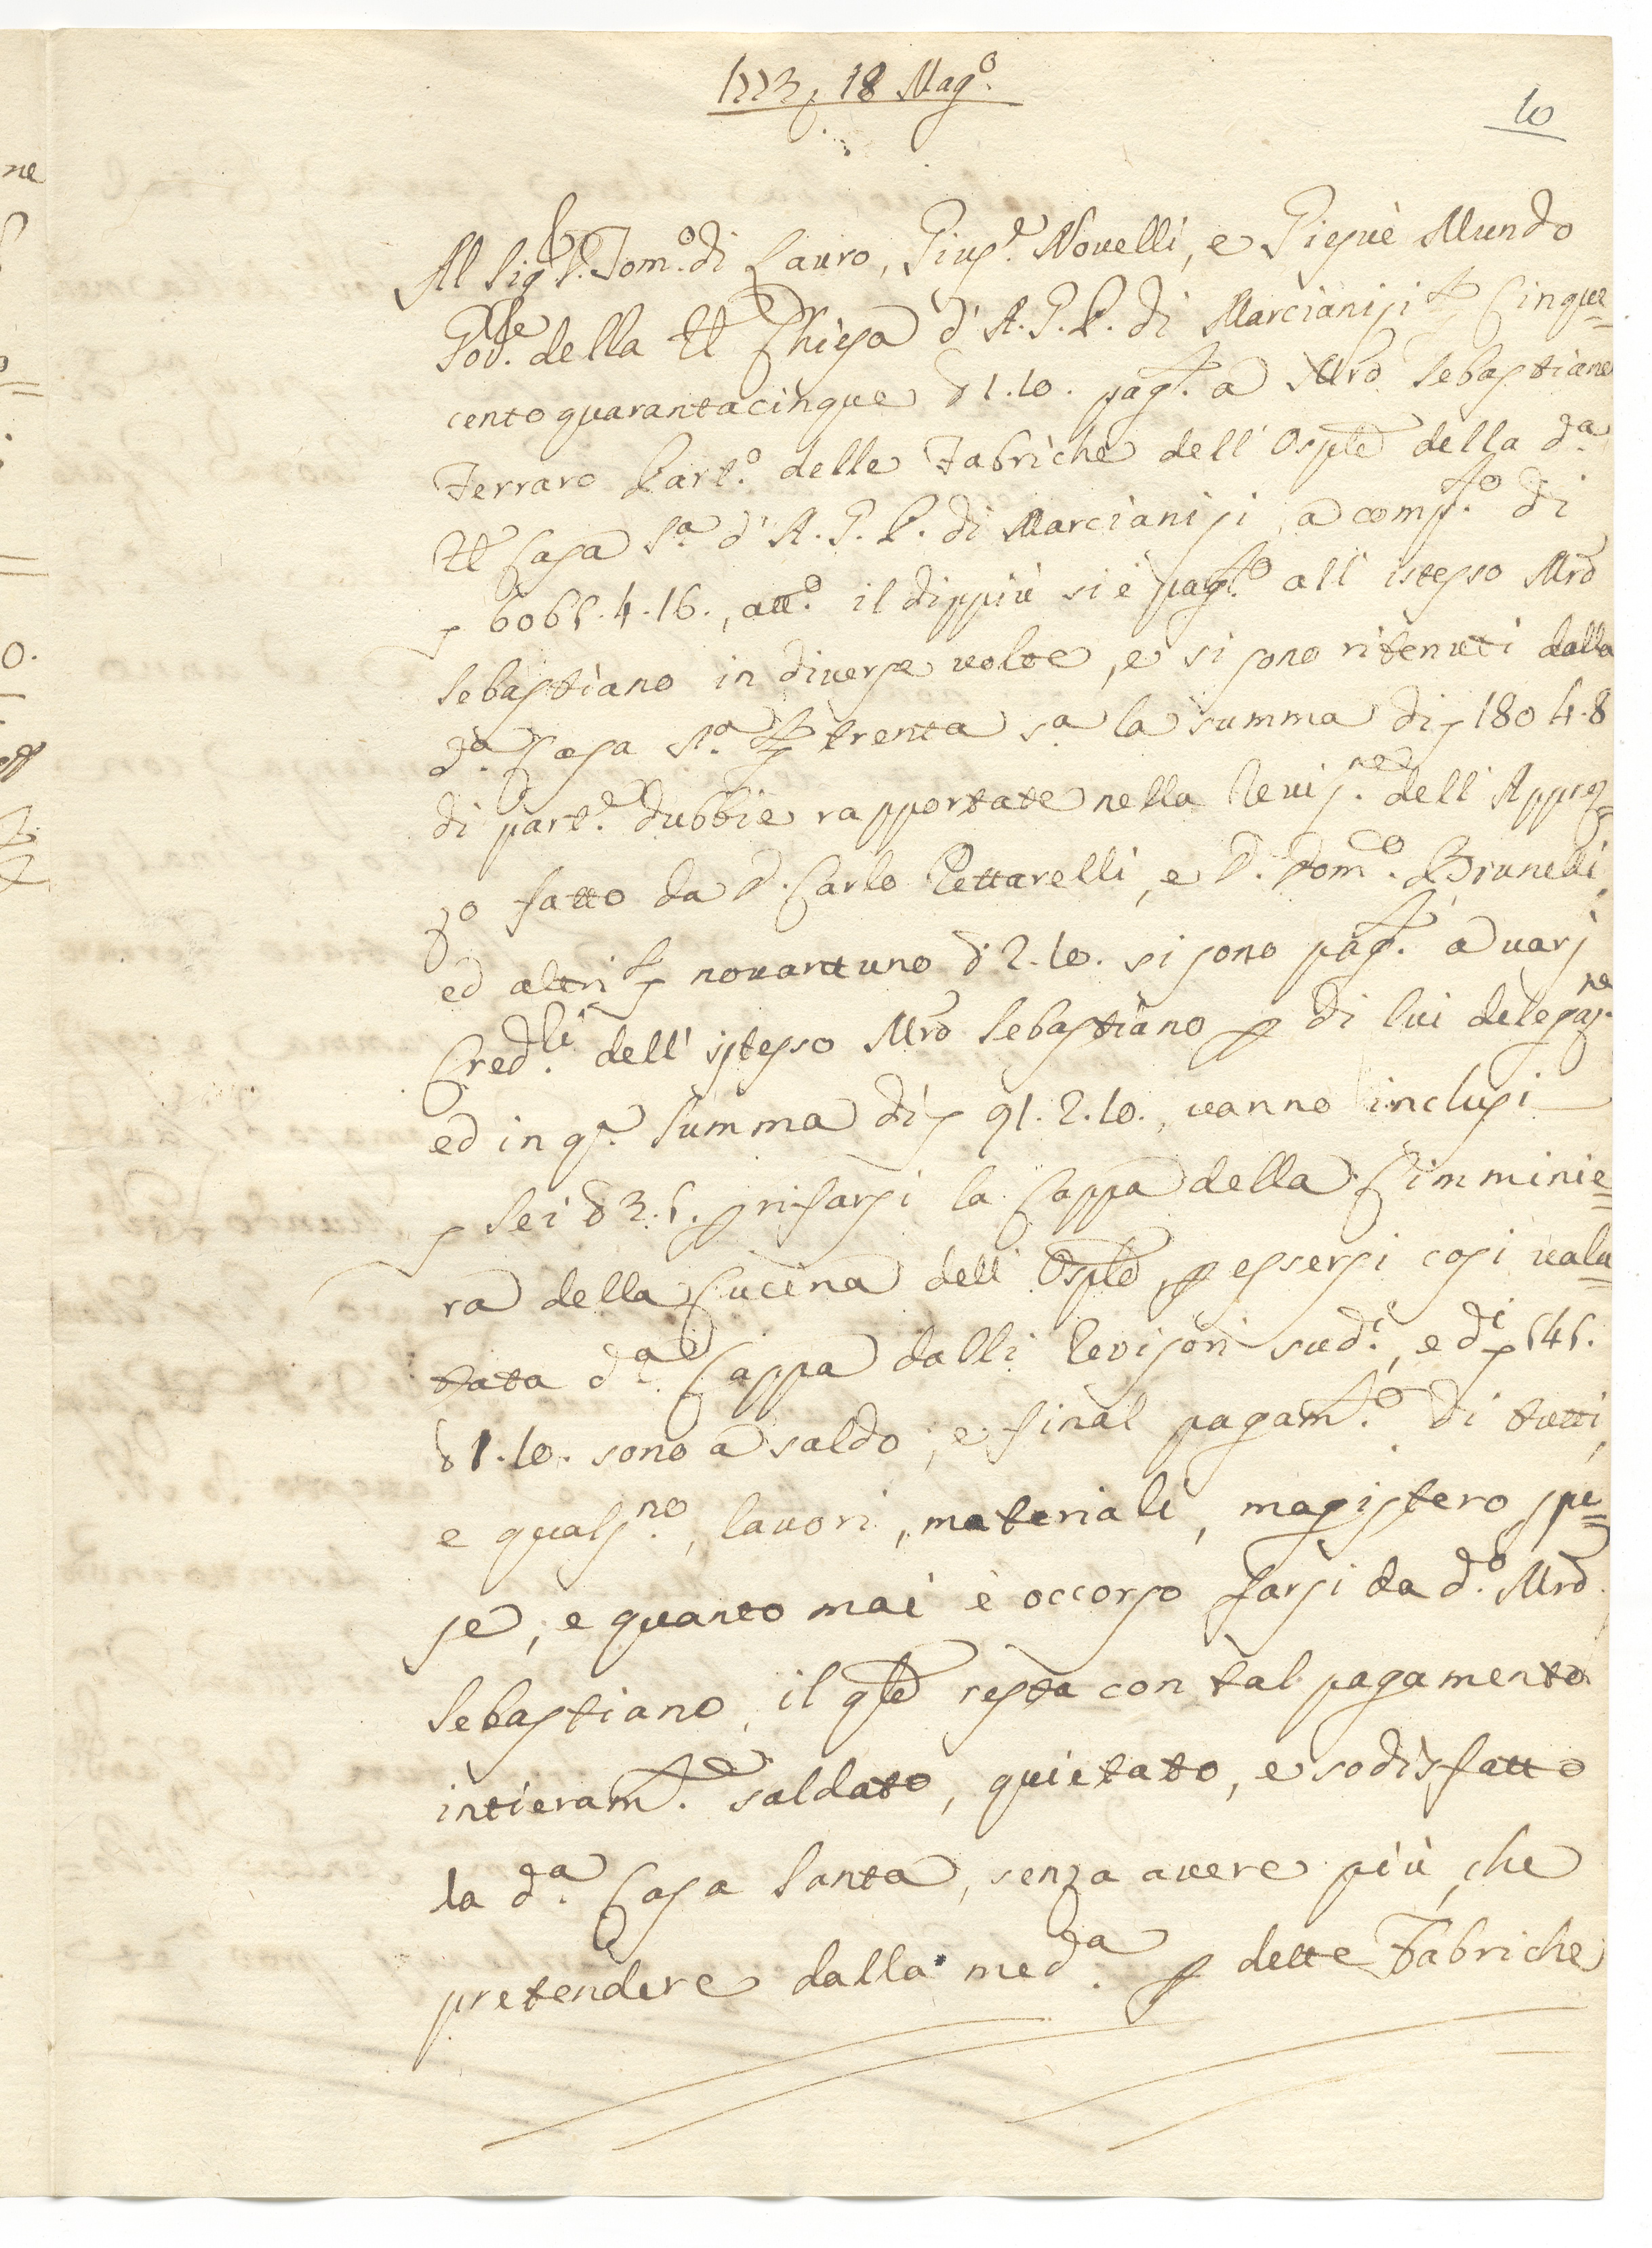 1773, 18 Mag.o
10
Al Sig.r D. Tom.o di Lauro, Gius.e Novelli, e Giesuè Mundo
Gov.ri della Chiesa d'A. G. P. di Marcianisi Cinque=
cento quarantacinque 1.10. pag.ti a Mro Sebastiano
Ferraro Part.o delle Fabriche dell'Osple della d.a
Casa S.a d'A. G. P. di Marcianisi a comp.to di
6065.4.16., att.o il dippiù si è pag.to all'istesso Mro
Sebastiano in diverse volte, e si sono ritenuti dalla
d.a Casa S.a trenta s.a la summa di 180 4.8
di part.e dubbie rapportate nella Revis.ne dell'Apprez
zo fatto da D. Carlo Pettarelli, e D. Dom.co Brunelli,
ed altri novantuno 2.10. si sono pag.ti a varj
Cred.li dell'istesso Mro Sebastiano p di lui delegaz.ne
ed in q.ta Summa di 91.2.10., vanno inclusi
Sei 3.5. p rifarsi la Cappa della Cimminie=
ra della Cucina dell'Osple, p essersi cosi valu=
tata d.a Cappa dalli Revisori sud.i, e d.i 545.
1.10. sono a saldo, e final pagam.to di tutti,
e quals.no, lavori, materiali, magistero spe=
se, e quanto mai è occorso farsi da d.o Mro
Sebastiano, il qle resta con tal pagamento
intieram.te saldato, quietato, e sodisfatto
la d.a Casa Santa, senza avere più che
pretendere dalla med.a p dette Fabriche